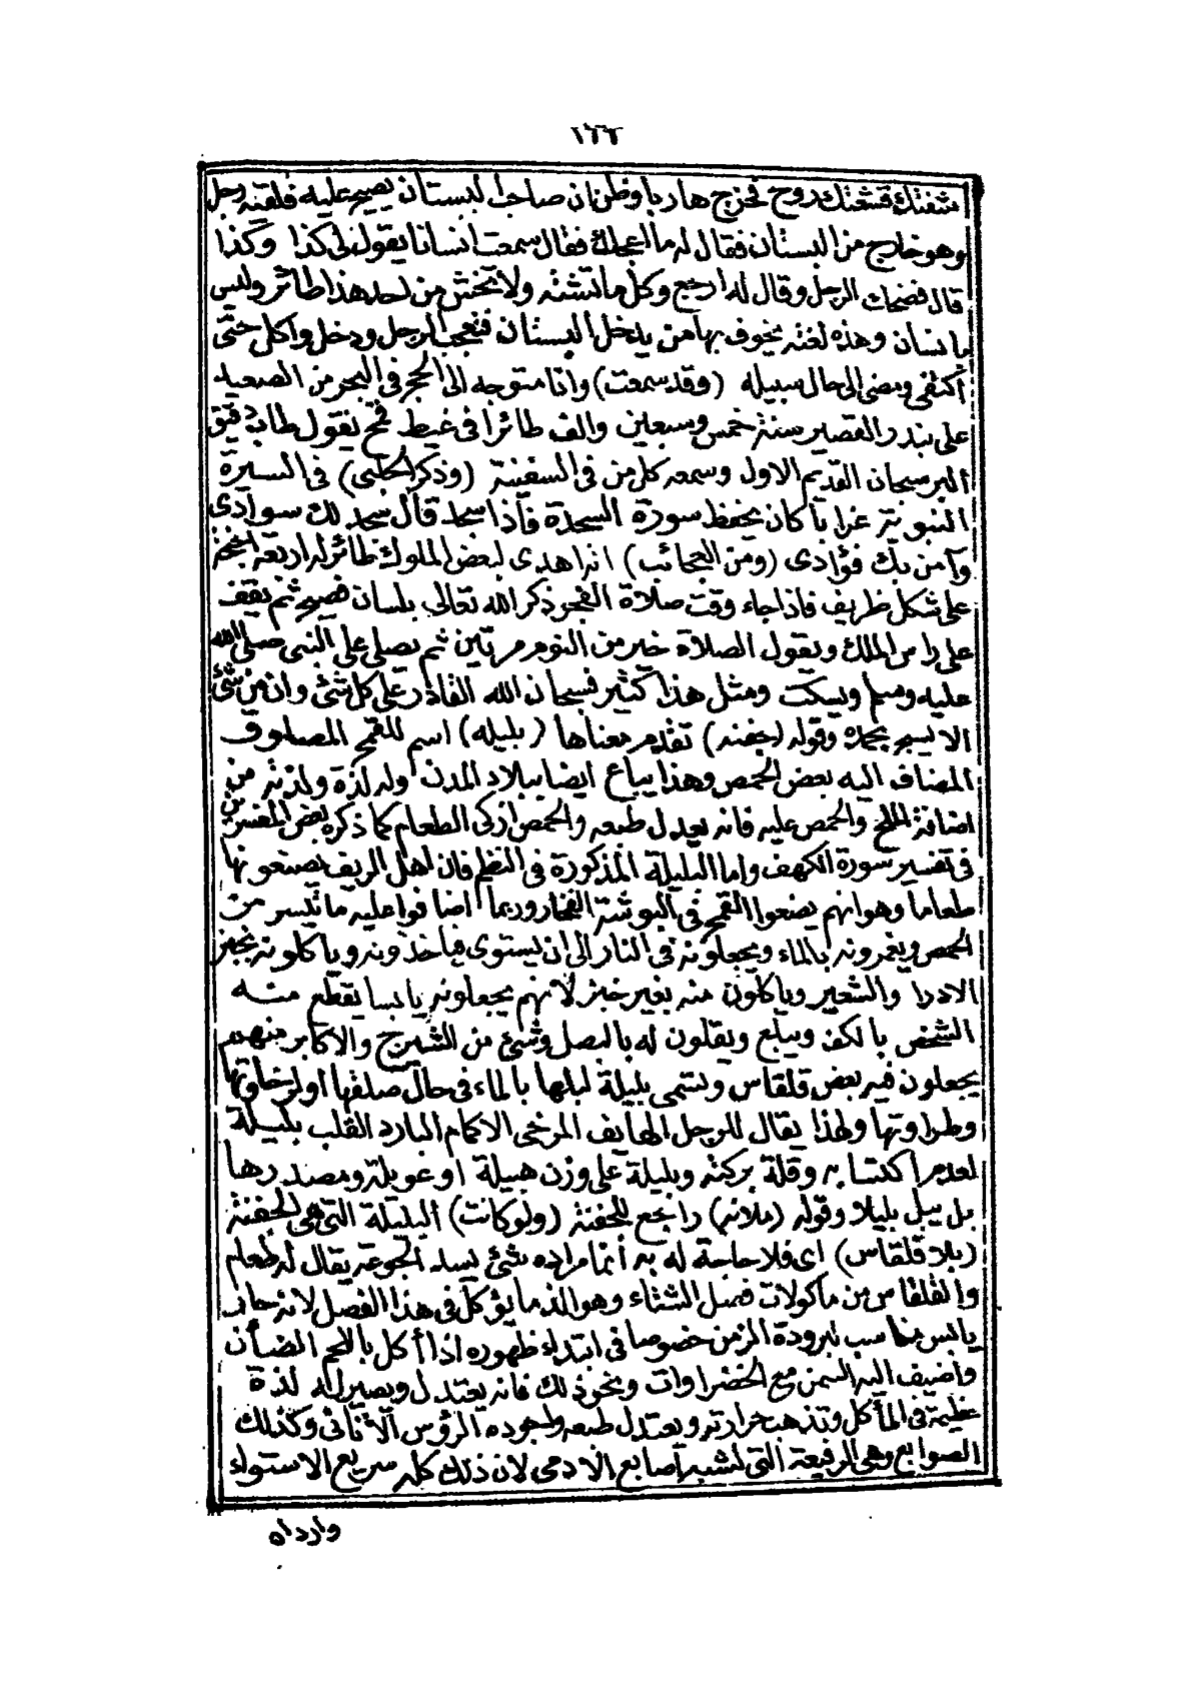 ١٦٦
شفتك قشعتك روح فخرج هاربا وظن ان صاحب البستان يصيح عليه فلقيه رجل
وهو خارج من البستان فقال له ما اعجلك فقال سمعت انسانا يقول لى كذا وكذا
قال فضحك الرجل وقال له ارجع وكل ما تشته ولا تخش من احد هذا طائر وليس
بانسان وهذه لغته يخوف بها من يدخل البستان فتعجب الرجل ودخل واكل حتى
اكتفى ومضى الى حال سبيله (وقد سمعت) وانا متوجه الى الحج فى البحر من الصعيد
على بندر القصير سنة خمس وسبعين والف طائرا فى غيط قمح يقول طاب دقيق
البر سبحان القديم الاول وسمعه كل من فى السفينة (وذكر الحلبى) فى السيرة
النبوية غرابا كان يحفظ سورة السجدة فاذا سجد قال سجد لك سوادى
وآمن بك فؤادى (ومن العجائب) انه اهدى لبعض الملوك طائر له اربعة اجنحة
على شكل ظريف فاذا جاء وقت صلاة الفجر ذكر الله تعالى بلسان فصيح ثم يقف
على راس الملك ويقول الصلاة خير من النوم مرتين ثم يصلى على النبى صلى الله
عليه وسلم ويسكت ومثل هذا كثير فسبحان الله القادر على كل شئ وان من شئ
الا يسبح بحمده وقوله (جفنه) تقدم معناها (بليله) اسم للقمح المصلوق
المضاف اليه بعض الحمص وهذا يباع ايضا ببلاد المدن وله لذة ولذته من
اضافة الملح والحمص عليه فانه يعدل طبعه والحمص ازكى الطعام كما ذكره بعض المفسرين
فى تفسير سورة الكهف واما البليلة المذكورة فى النظم فان اهل الريف يصنعونها
طعاما وهو انهم يضعوا القمح فى البوشة الفخار وربما اضافوا عليه ما تيسر من
الحمص ويغمرونه بالماء ويجعلونه فى النار الى ان يستوى فياخذونه وياكلونه بخبز
الادرا والشعير وياكلون منه بغير خبز لانهم يجعلونه يابسا يقطع منه
الشخص بالكف ويبلع ويقلون له بالبصل وشئ من الشيرج والاكابر منهم
يجعلون فيه بعض قلقاس وتسمى بليلة لبلها بالماء فى حال صلقها او لرخاوتها
وطراوتها ولهذا يقال للرجل الهايف المرخى الاكمام البارد القلب بليلة
لعدم اكتسابه وقلة بركته وبليلة على وزن هبيلة او عويلة ومصدرها
بل يبل بليلا وقوله (ملانه) راجع للجفنة (ولو كانت) البليلة التى هى الجفنة
(بلا قلقاس) اى فلا حاجة له به انما مراده شئ يسد الجوعة يقال له طعام
والقلقاس من ماكولات فصل الشتاء وهو الذ ما يؤكل فى هذا الفصل لانه حار
يابس يناسب لبرودة الزمن خصوصا فى ابتداء ظهوره اذا أكل بالحم الضأن
واضيف اليه السمن مع الخضراوات ونحو ذلك فانه يعتدل ويصير له لذة
عظيمة فى المأكل وتذهب حرارته ويعتدل طبعه واجوده الرؤس الاناثى وكذلك
الصوابع وهى الرفيعة التى تشبه اصابع الادمى لان ذلك كله سريع الاستواء
وارداه